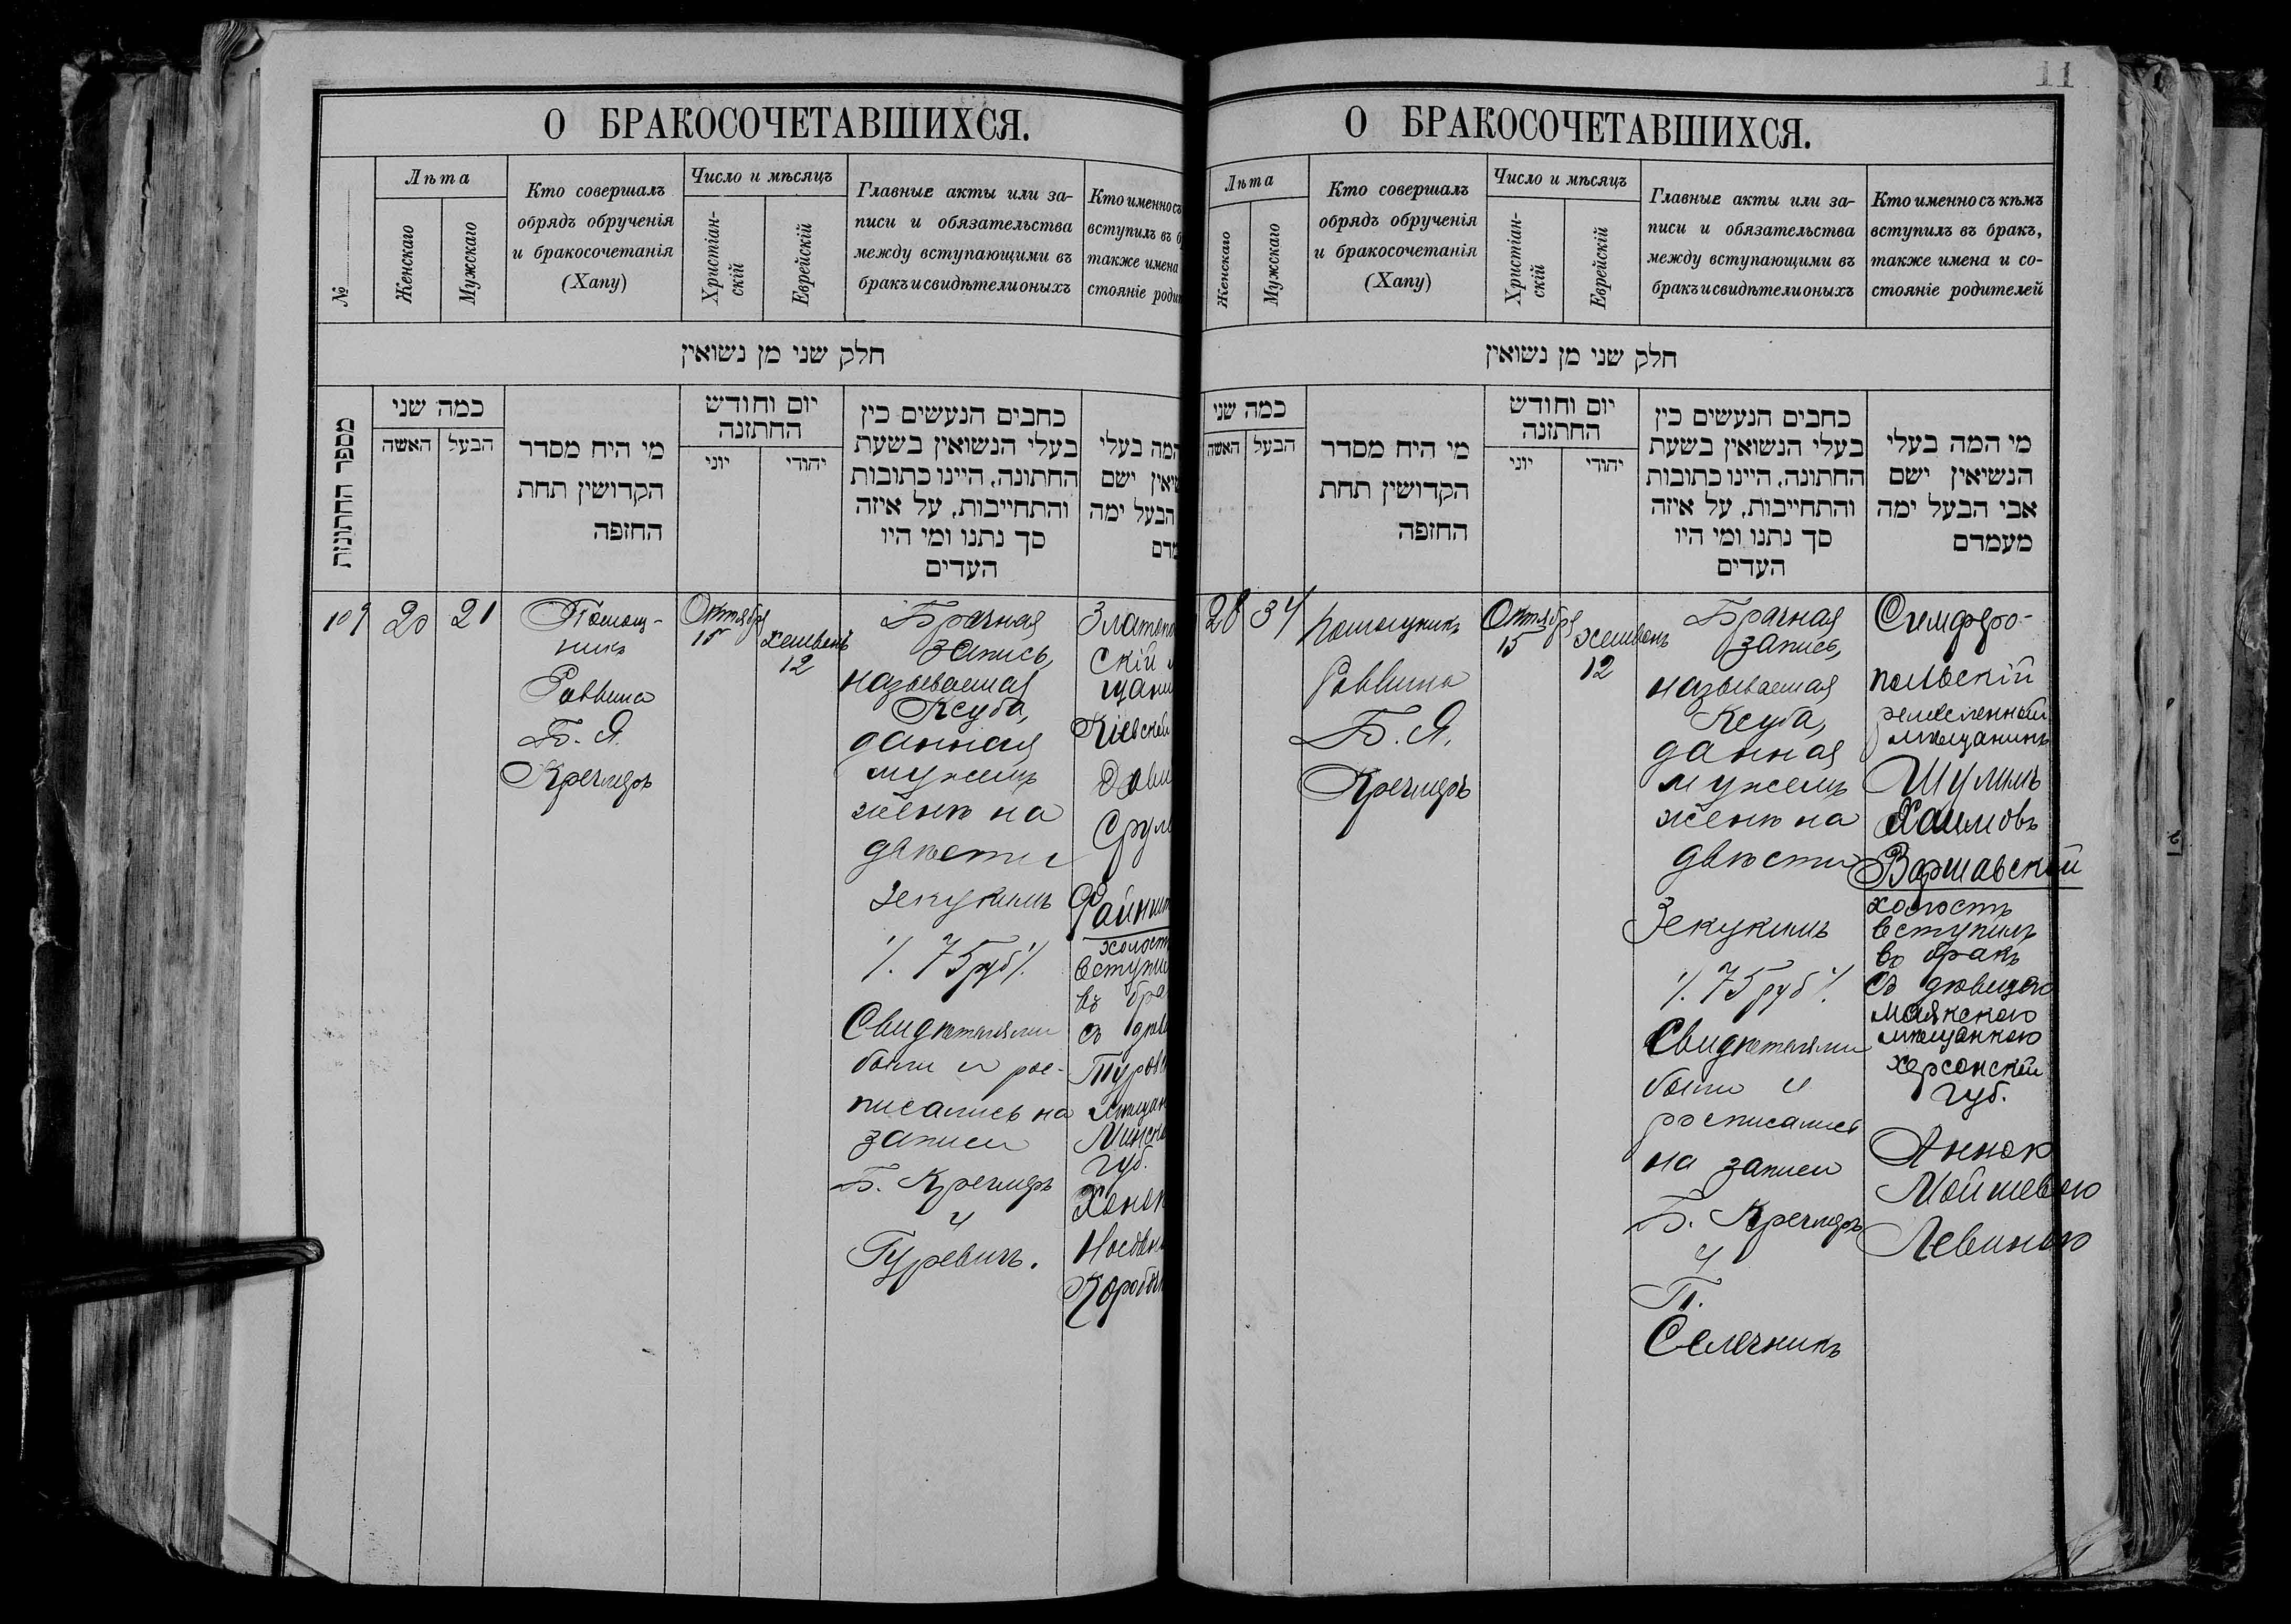 О БРАКОСОЧЕТАВШИХСЯ.
№
Лѣта
Женскаго
Мужскаго
Кто совершалъ
обрядъ обрученія
и бракосочетанія
(Хапу)
Число и мѣсяцъ
Христіан-
скій
Еврейскій
Главные акты или за-
писи и обязательства
между вступающими въ
бракъ и свидѣтели оныхъ
Кто именно съ
вступилъ въ б
также имена
стояніе роди
חלק שני מן נשואין
מספר החתונות
כמה שני
האשה
הבעל
מי היח מסדר
הקדושין תחת
החזפה
יום וחודש
החתזנה
יוני
יהודי
כחבים הנעשים כין
בעלי הנשואין בשעת
החתונה, היינו כתובות
והתחייבות, על איזה
סך נתנו ומי היו
העדים
המה בעלי
שיאין ישם
הבעל ימה
מדם
109
20
21
Помощ-
никъ
Раввина
Б. Я.
Кречмеръ
Октября
15
Хешвенъ
12
Брачная
запись,
называемая
Ксуба,
данная
мужемъ
женѣ на
двѣсти
зекукимъ
./. 75 руб ./.
Свидѣтелями
были и рос-
писались на
записи
Б. Кречмеръ
и
Гуревичъ.
Златопо
скій м
щани
Кіевской
Дави
Срул
Файнш
холост
вступи
въ бра
съ дѣв
Туровск
мѣщан
Минско
губ.
Хонок
Носовн
Коробоч
11
О БРАКОСОЧЕТАВШИХСЯ.
Лѣта
Женскаго
Мужскаго
Кто совершалъ
обрядъ обрученія
и бракосочетанія
(Хапу)
Число и мѣсяцъ
Христіан-
скій
Еврейскій
Главные акты или за-
писи и обязательства
между вступающими въ
бракъ и свидѣтели оныхъ
Кто именно съ кѣмъ
вступилъ въ бракъ,
также имена и со-
стояніе родителей
חלק שני מן נשואין
כמה שני
האשה
הבעל
מי היח מסדר
הקדושין תחת
החזפה
יום וחודש
החתזנה
יוני
יהודי
כחבים הנעשים כין
בעלי הנשואין בשעת
החתונה, היינו כתובות
והתחייבות, על איזה
סך נתנו ומי היו
העדים
מי המה בעלי
הנשיאין ישם
אבי הבעל ימה
מעמדם
28
34
Помощникъ
Раввина
Б. Я.
Кречмеръ
Октября
15
Хешвенъ
12
Брачная
запись,
называемая
Ксуба,
данная
мужемъ
женѣ на
двѣсти
Зекукимъ
./. 75 руб ./.
Свидѣтелями
были и
росписались
на записи
Б. Кречмеръ
и
П.
Селечникъ
Симферо-
польскій
ремесленный
мѣщанинъ
Шулимъ
Хаимовъ
Варшавскій
холостъ
вступилъ
въ бракъ
съ дѣвицею
маякскою
мѣщанкою
Херсонской
губ.
Анною
Мойшевою
Левиною